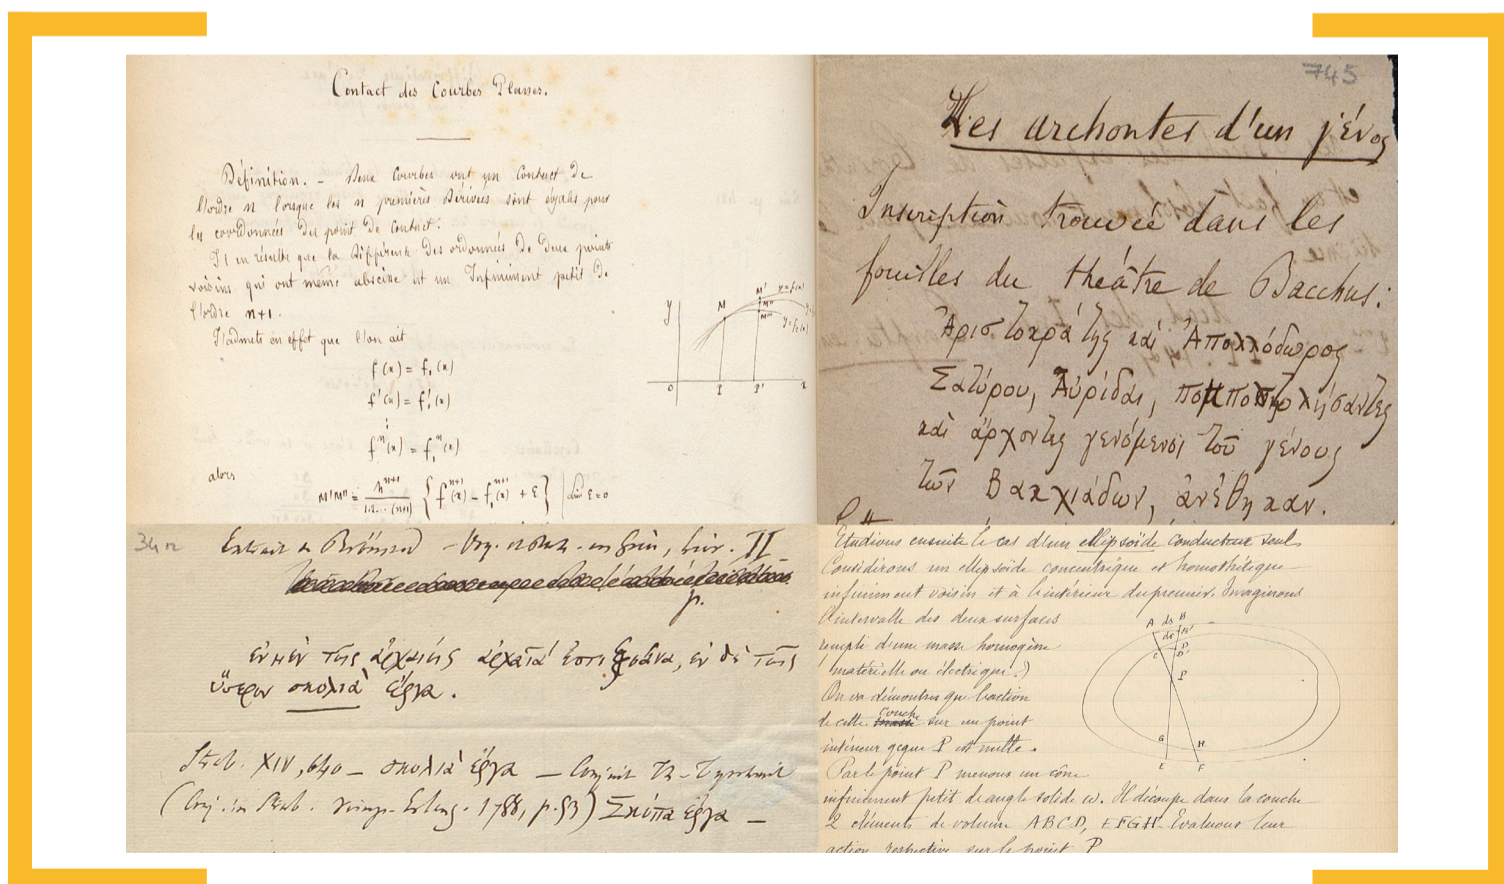 Contact des Courbes Planes.
Définition. - Deux courbes ont un contact de
l'ordre n lorsque les n premières dérivées sont égales pour
les coordonnées du point de contact.
Il en résulte que la différence des ordonnées de deux points
voisins qui ont même abscisse est un Infiniment petit de
l'ordre n+1.
J'admets en effet que l'on ait
f(x) = f₁(x)
f'(x) = f'₁(x)
⋮
fⁿ(x) = fⁿ₁(x)
alors
M'M'' = hⁿ⁺¹ / 1.2...(n+1) { fⁿ⁺¹(x) - f₁ⁿ⁺¹(x) + ε } | lim ε=0
y M M' y=f(x)
M''
M''' y=f₁(x)
O P P' x
745
Les archontes d'un γένος
Inscription trouvée dans les
fouilles du théâtre de Bacchus:
Ἀριστοκράτης καὶ Ἀπολλόδωρος
Σατύρου, Αὐρίδαι, πομποστολήσαντες
καὶ ἄρχοντες γενόμενοι τοῦ γένους
τῶν Βακχιάδων, ἀνέθηκαν.
34
Extrait de - en Grèce, liv. II
p.
ἐν μὲν τοῖς ἀρχαίοις ἀρχαῖά ἐστι ξόανα, ἐν δὲ τοῖς
ὕστερον σκολιὰ ἔργα.
Strab. XIV, 640 - σκολιὰ ἔργα - Tyrwhitt
(Conj. in Strab. Erlang. 1788, p. 53) Σκόπα ἔργα -
Etudions ensuite le cas d'un ellipsoïde conducteur seul
Considérons un ellipsoïde concentrique et homothétique
infiniment voisin et à l'intérieur du premier. Imaginons
l'intervalle des deux surfaces
rempli d'une masse homogène
(matérielle ou électrique.)
On va démontrer que l'action
de cette couche sur un point
intérieur qcque P est nulle.
Par le point P menons un cône
infiniment petit de angle solide ω. Il découpe dans la couche
2 éléments de volume ABCD, EFGH. Evaluons leur
action respective sur le point P
A ds B
dr
C D
P
G H
E F